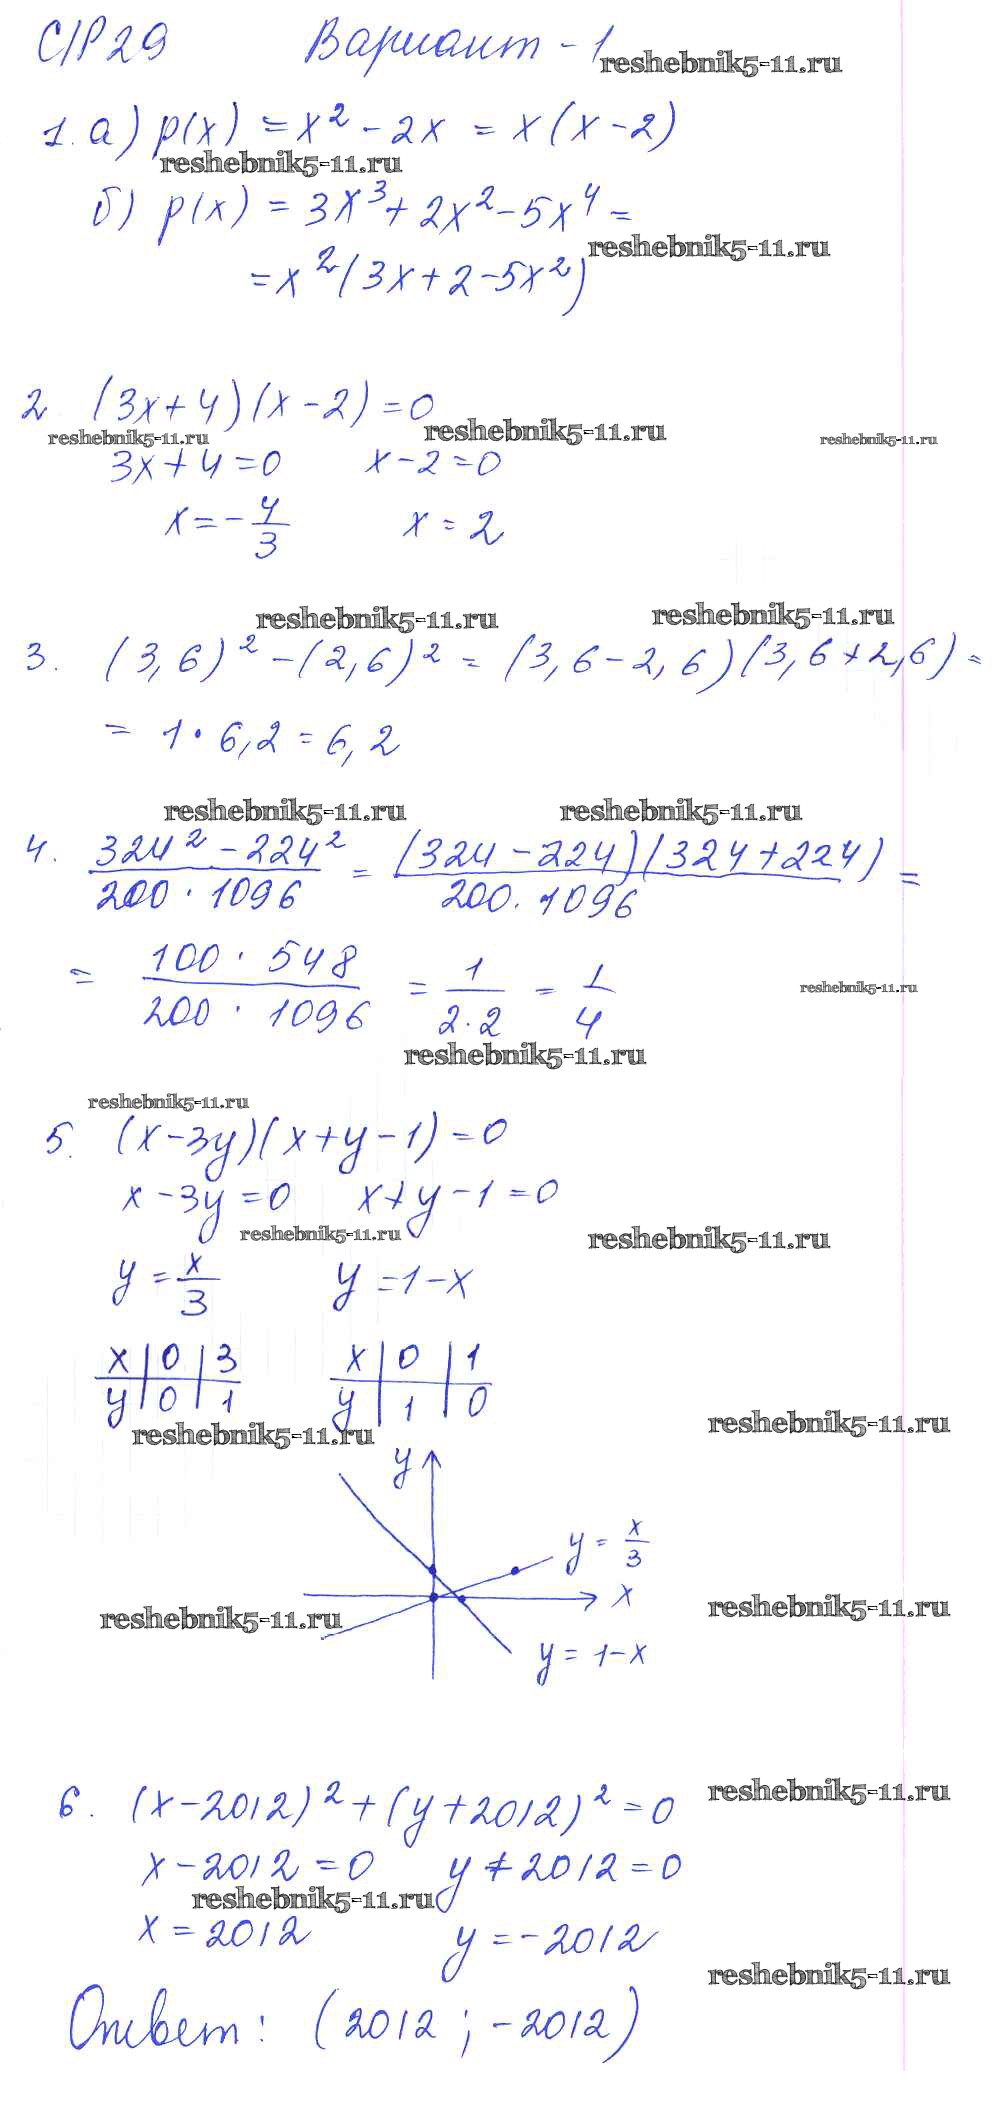 С/Р 29 Вариант - 1
reshebnik5-11.ru
1. а) p(x) = x² - 2x = x(x - 2)
reshebnik5-11.ru
б) p(x) = 3x³ + 2x² - 5x⁴ =
reshebnik5-11.ru
= x²(3x + 2 - 5x²)
2. (3x + 4)(x - 2) = 0
reshebnik5-11.ru reshebnik5-11.ru reshebnik5-11.ru
3x + 4 = 0 x - 2 = 0
x = - 4/3 x = 2
reshebnik5-11.ru reshebnik5-11.ru
3. (3,6)² - (2,6)² = (3,6 - 2,6)(3,6 + 2,6) =
= 1 · 6,2 = 6,2
reshebnik5-11.ru reshebnik5-11.ru
4. (324² - 224²)/(200 · 1096) = (324 - 224)(324 + 224)/(200 · 1096) =
= (100 · 548)/(200 · 1096) = 1/(2·2) = 1/4
reshebnik5-11.ru
reshebnik5-11.ru
reshebnik5-11.ru
5. (x - 3y)(x + y - 1) = 0
x - 3y = 0 x + y - 1 = 0
reshebnik5-11.ru reshebnik5-11.ru
y = x/3 y = 1 - x
x | 0 | 3 x | 0 | 1
y | 0 | 1 y | 1 | 0
reshebnik5-11.ru reshebnik5-11.ru
y
y = x/3
x
reshebnik5-11.ru reshebnik5-11.ru
y = 1 - x
reshebnik5-11.ru
6. (x - 2012)² + (y + 2012)² = 0
x - 2012 = 0 y + 2012 = 0
reshebnik5-11.ru
x = 2012 y = -2012
reshebnik5-11.ru
Ответ: (2012 ; -2012)